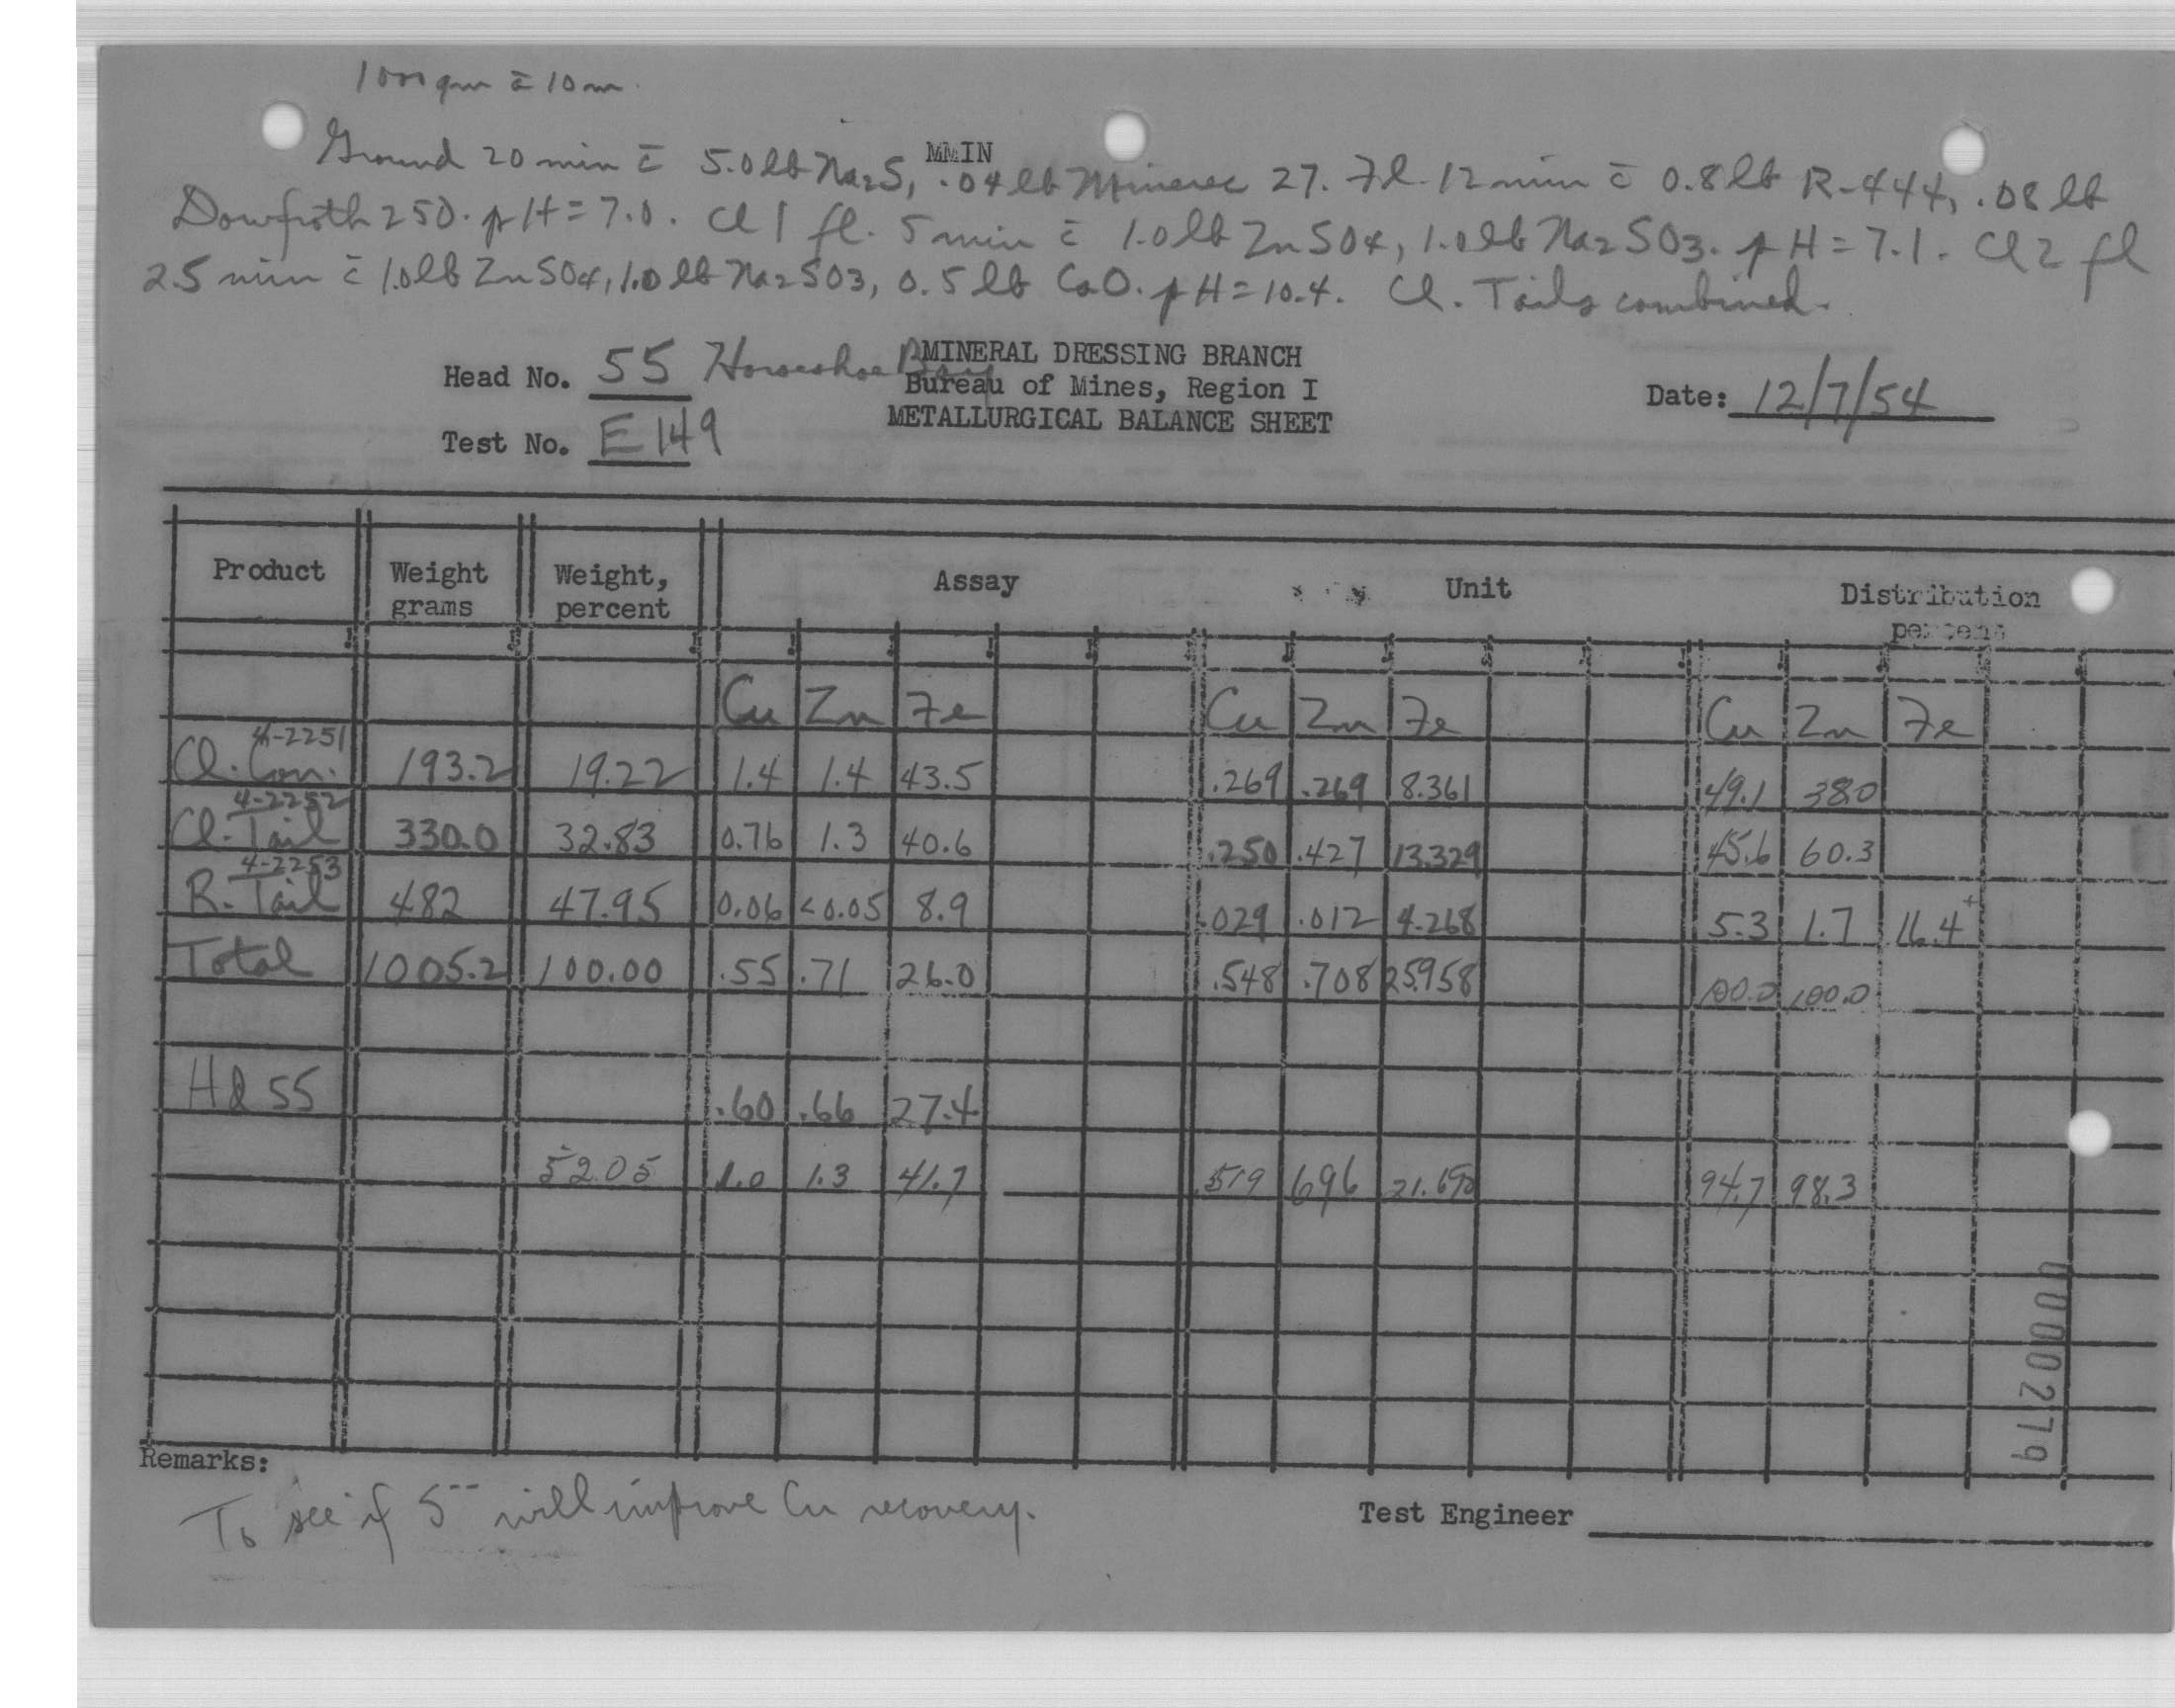 1000 gm c̄ 10 m.
MMIN
Ground 20 min c̄ 5.0 lb Na2S, .04 lb Minerec 27. Fl. 12 min c̄ 0.8 lb R-444, .08 lb
Dowfroth 250. pH = 7.0. Cl 1 fl. 5 min c̄ 1.0 lb ZnSO4, 1.0 lb Na2SO3. pH = 7.1. Cl 2 fl
2.5 min c̄ 1.0 lb ZnSO4, 1.0 lb Na2SO3, 0.5 lb CaO. pH = 10.4. Cl. Tails combined.
Head No. 55 Horseshoe Bay
MINERAL DRESSING BRANCH
Bureau of Mines, Region I
METALLURGICAL BALANCE SHEET
Date: 12/7/54
Test No. E 149
Product Weight grams Weight, percent Assay Unit Distribution percent
Cu Zn Fe Cu Zn Fe Cu Zn Fe
4-2251
Cl. Con. 193.2 19.22 1.4 1.4 43.5 .269 .269 8.361 49.1 38.0
4-2252
Cl. Tail 330.0 32.83 0.76 1.3 40.6 .250 .427 13.329 45.6 60.3
4-2253
R. Tail 482 47.95 0.06 <0.05 8.9 .029 .012 4.268 5.3 1.7 16.4+
Total 1005.2 100.00 .55 .71 26.0 .548 .708 25.958 100.0 100.0
Hd 55 .60 .66 27.4
52.05 1.0 1.3 41.7 .519 696 21.690 94.7 98.3
0000279
Remarks:
To see if S-- will improve Cu recovery.
Test Engineer